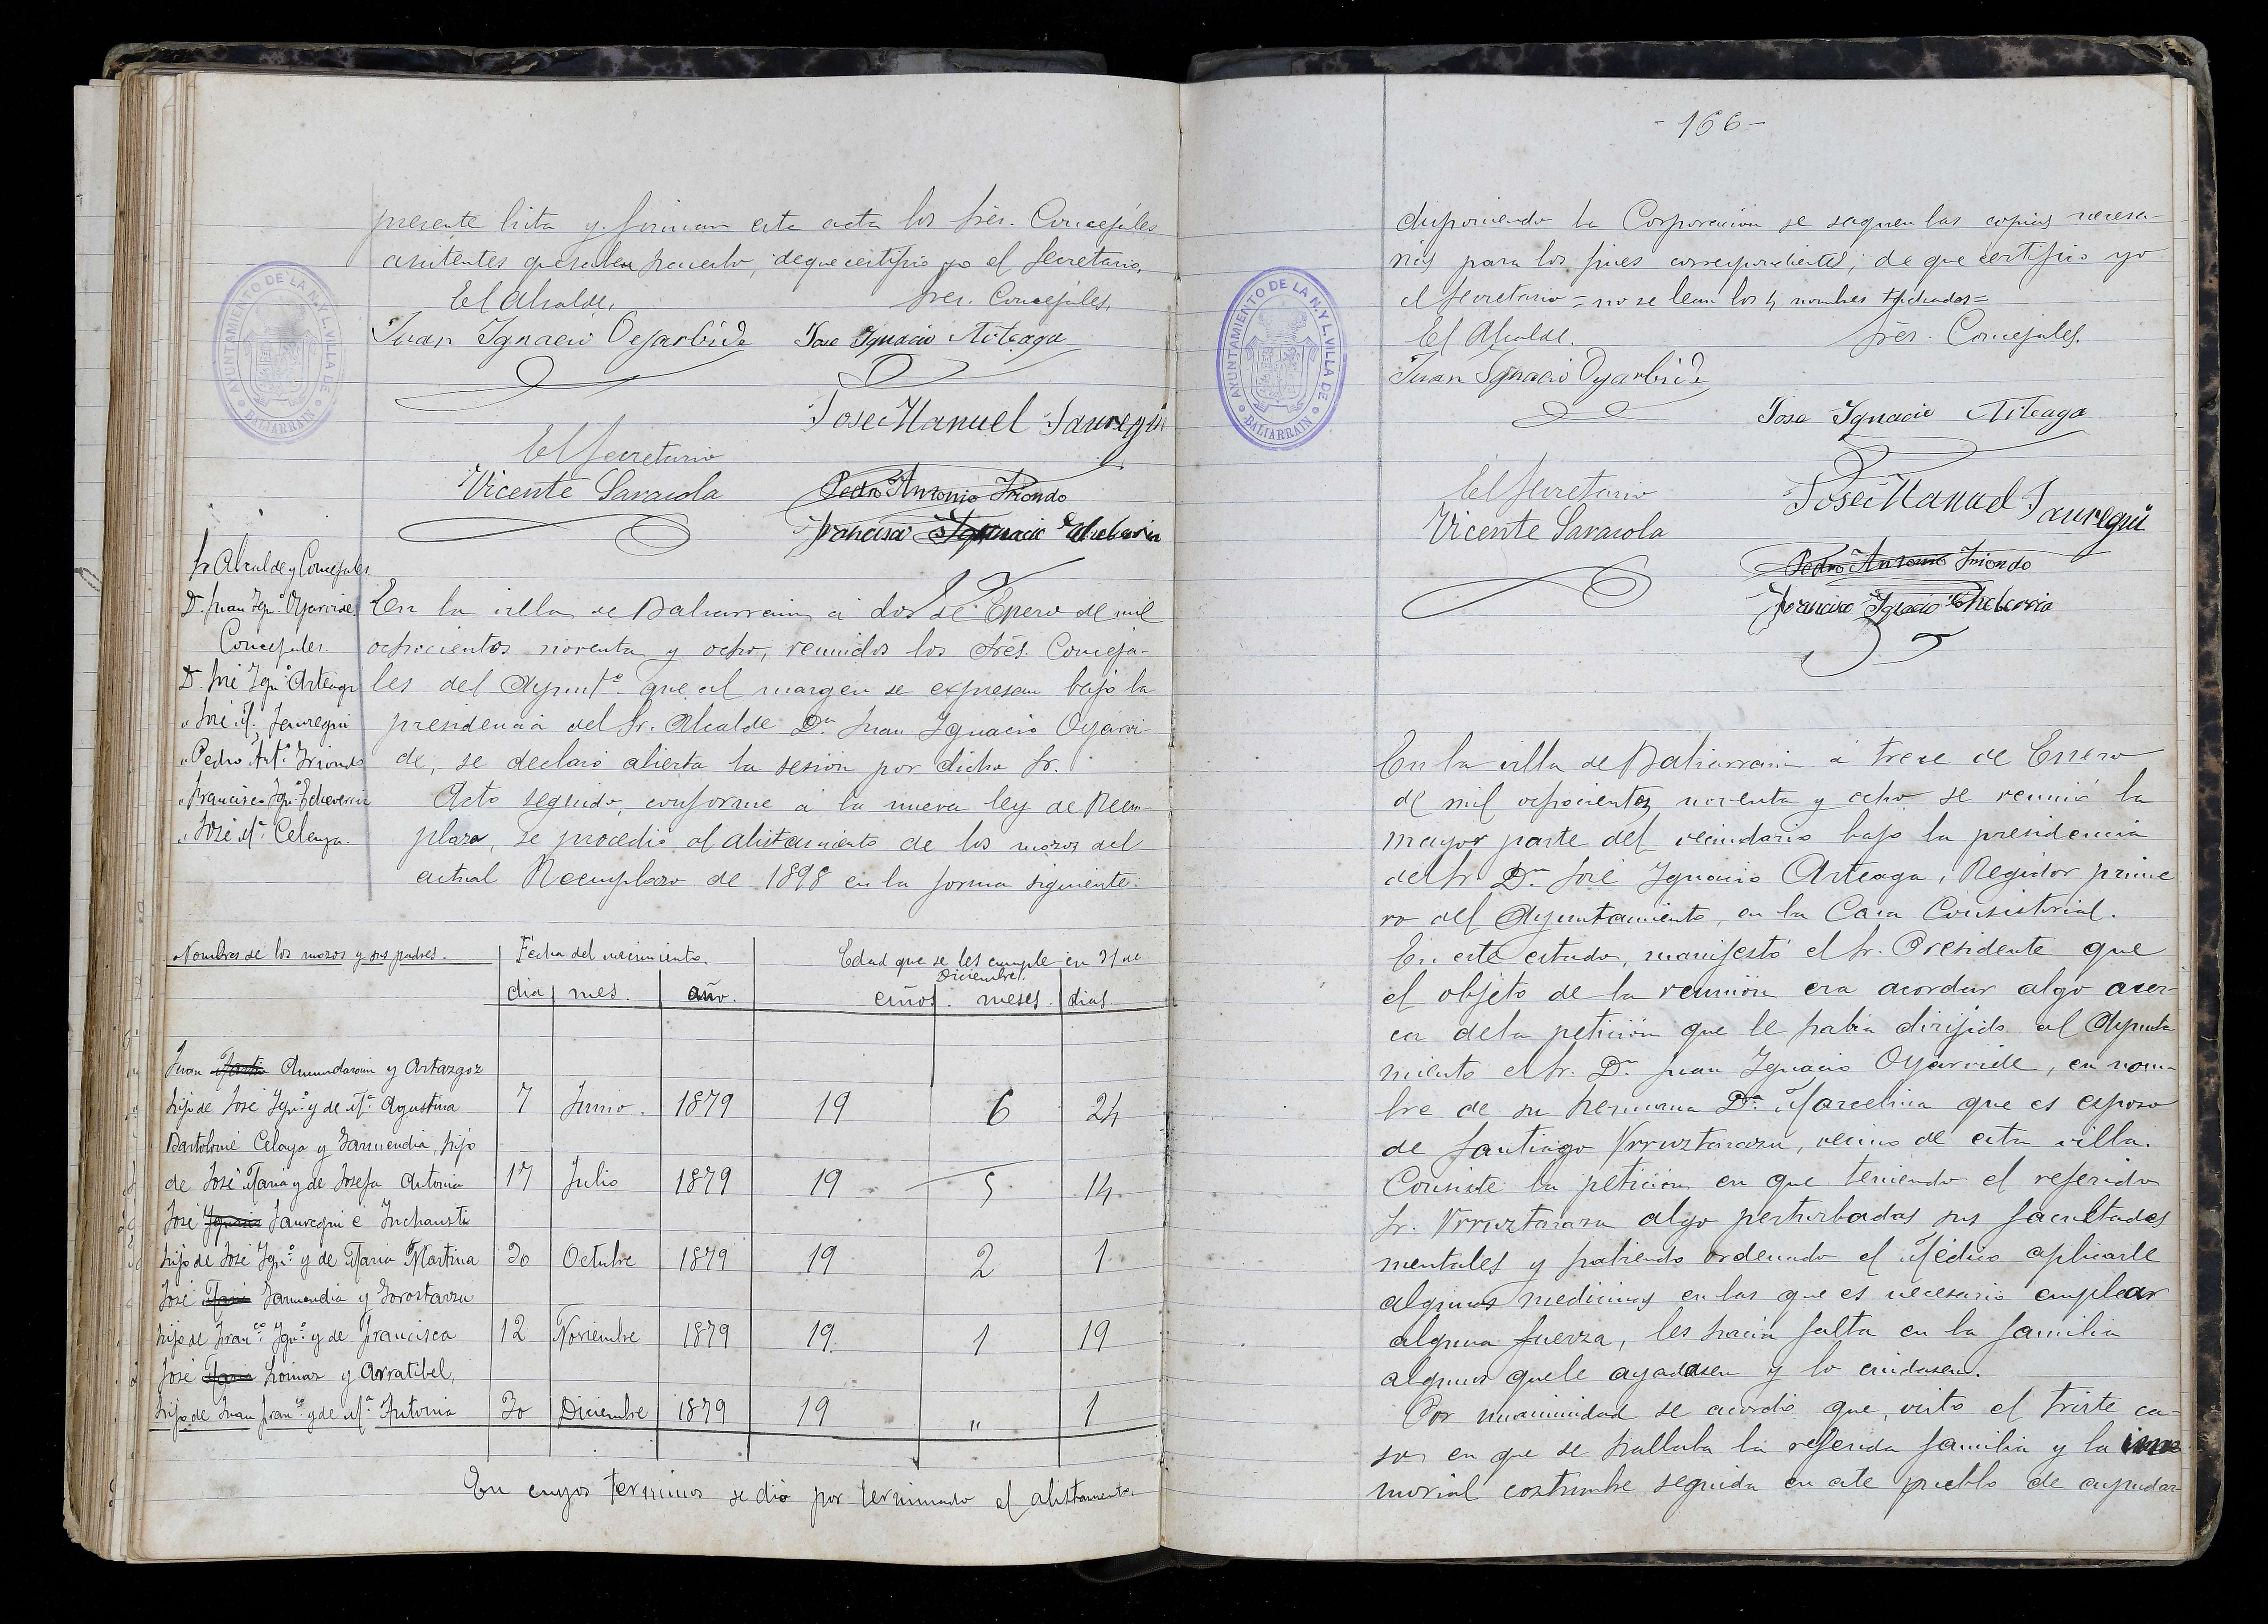 presente lista y firman esta acta los Sres. Concejales
asistentes que saben hacerlo, de que certifico yo el Secretario.
El Alcalde, Sres. Concejales,
Juan Ignacio Oyarbide Jose Ignacio Arteaga
Jose Manuel Jauregui
El Secretario
Vicente Saraiola Pedro Antonio Iriondo
Francisco Ignacio Echeberria
AYUNTAMIENTO DE LA N. Y L. VILLA DE
BALIARRAIN
Sr Alcalde y Concejales
D. Juan Ign.º Oyarvide
Concejales.
D. José Ign.º Arteaga
" José M. Jauregui
" Pedro Ant.º Iriondo
" Francisco Ign.º Echeverria
" José M.ª Celaya.
En la villa de Baliarrain á dos de Enero de mil
ochocientos noventa y ocho, reunidos los Srés. Conceja-
les del Ayunt.º que al margen se expresan bajo la
presidencia del Sr. Alcalde Dn. Juan Ignacio Oyarvi-
de, se declaró abierta la sesión por dicho Sr.
Acto seguido, conforme á la nueva ley de Reem-
plazo, se procedió al alistamiento de los mozos del
actual Reemplazo de 1898 en la forma siguiente:
Nombres de los mozos y sus padres. Fecha del nacimiento. Edad que se les cumple en 31 de
Diciembre.
dia mes. año. años. meses. dias.
Juan Amundarain y Artazgoz
hijo de José Ign.º y de M.ª Agustina 7 Junio. 1879 19 6 24
Bartolomé Celaya y Garmendia, hijo
de José Maria y de Josefa Antonia 17 Julio 1879 19 5 14
José Ignacio Jauregui é Inchausti
hijo de José Ign.º y de Maria Martina 30 Octubre 1879 19 2 1
José Maria Garmendia y Gorostarzu
hijo de Fran.co Ign.º y de Francisca 12 Noviembre 1879 19. 1 19
José Maria Loinaz y Arratibel,
hijo de Juan Fran.co y de M.ª Antonia 30 Diciembre 1879 19 " 1
En cuyos terminos se dió por terminado el alistamiento
- 166 -
disponiendo la Corporación se saquen las copias necesa-
rias para los fines correspondientes; de que certifico yo
el Secretario = no se lean los 4 nombres tachados =
El Alcalde. Srés. Concejales.
Juan Ignacio Oyarbide
Jose Ignacio Arteaga
El Secretario Jose Manuel Jauregui
Vicente Saraiola
Pedro Antonio Iriondo
Francisco Ignacio Echeberria
AYUNTAMIENTO DE LA N. Y L. VILLA DE
BALIARRAIN
En la villa de Baliarrain á trece de Enero
de mil ochocientos noventa y ocho se reunió la
mayor parte del vecindario bajo la presidencia
del Sr. Dn. José Ignacio Arteaga, Regidor prime
ro del Ayuntamiento, en la Casa Consistorial.
En este estado, manifestó el Sr. Presidente que
el objeto de la reunión era acordar algo acer-
ca de la petición que le habia dirijido al Ayunta
miento el Sr. Dn. Juan Ignacio Oyarvide, en nom-
bre de su hermana Dª. Marcelina que es esposa
de Santiago Urruztarazu, vecino de esta villa.
Consiste la petición en que teniendo el referido
Sr. Urruztarazu algo perturbadas sus facultades
mentales y habiendo ordenado el Médico aplicarle
algunas medicinas en las que es necesario emplear
alguna fuerza, les hacia falta en la familia
algunos que le ayudasen y lo cuidasen.
Por unanimidad se acordó que, visto el triste ca-
so en que se hallaba la referida familia y la inme
morial costumbre seguida en este pueblo de ayudar